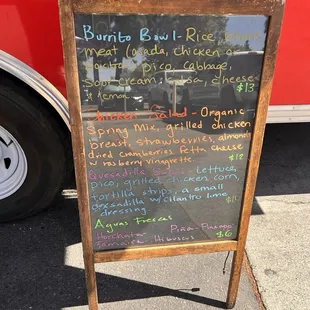 Burrito Bowl - Rice, beans
meat (asada, chicken or
pico, cabbage,
sour cream, salsa, cheese
& lemon $13
Chicken Salad - Organic
Spring Mix, grilled chicken
breast, strawberries, almonds
dried cranberries fetta cheese
w/rasberry vinaigrette. $13
Quesadilla Lettuce,
pico, grilled chicken, corn,
tortilla strips, a small
quesadilla w/cilantro lime
dressing. $11
Aguas Frescas
Horchata Piña-Pineapple
Jamaica Hibiscus $6